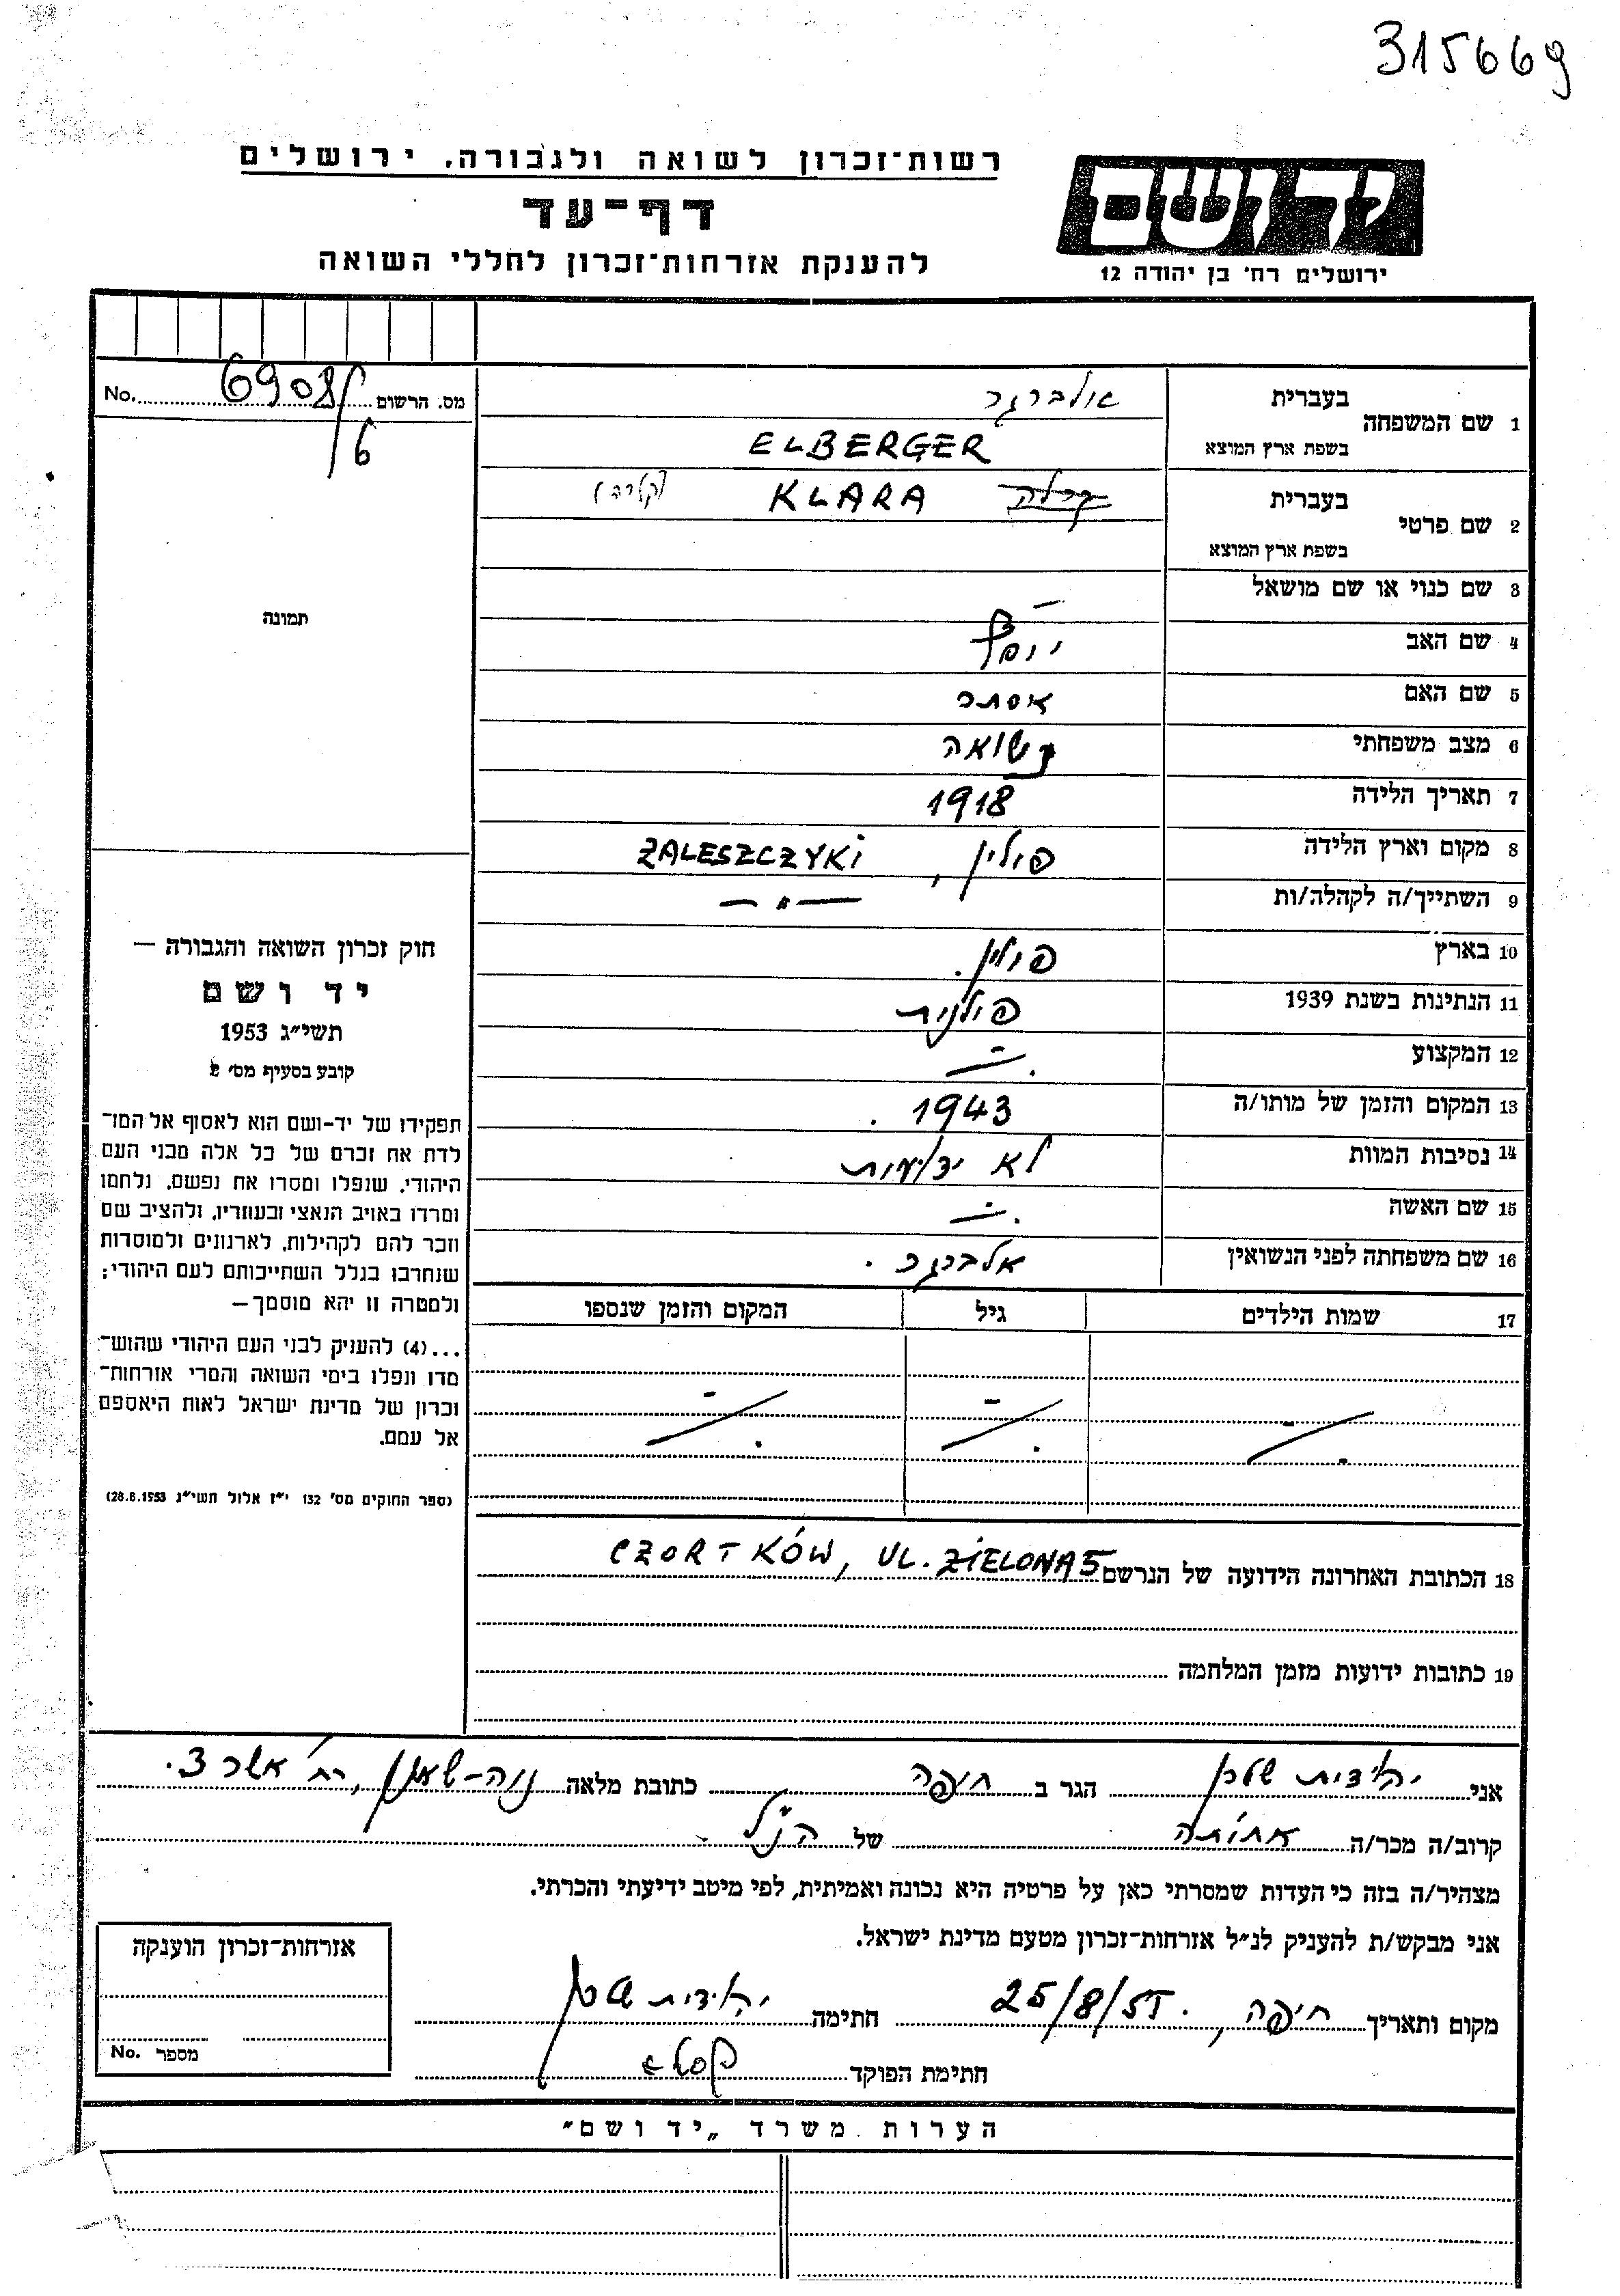 315669
רשות־זכרון לשואה ולגבורה, ירושלים
דף־עד
להענקת אזרחות־זכרון לחללי השואה
יד ושם
ירושלים רח' בן יהודה 12
מס. הרשום 6908/6 No.
תמונה
1 שם המשפחה בעברית אלברגר
בשפת ארץ המוצא ELBERGER
2 שם פרטי בעברית KLARA
בשפת ארץ המוצא
3 שם כנוי או שם מושאל –
4 שם האב יוסף
5 שם האם אסתר
6 מצב משפחתי נשואה
7 תאריך הלידה 1918
8 מקום וארץ הלידה פולין, ZALESZCZYKI
9 השתייך/ה לקהלה/ות — " —
10 בארץ פולין.
11 הנתינות בשנת 1939 פולנית
12 המקצוע
13 המקום והזמן של מותו/ה 1943.
14 נסיבות המוות לא ידועות
15 שם האשה
16 שם משפחתה לפני הנשואין אלברגר.
17 שמות הילדים גיל המקום והזמן שנספו
18 הכתובת האחרונה הידועה של הנרשם CZORTKÓW, UL. ZIELONA 5
19 כתובות ידועות מזמן המלחמה
חוק זכרון השואה והגבורה —
יד ושם
תשי״ג 1953
קובע בסעיף מס' 2
תפקידו של יד-ושם הוא לאסוף אל המו־
לדת את זכרם של כל אלה מבני העם
היהודי, שנפלו ומסרו את נפשם, נלחמו
ומרדו באויב הנאצי ובעוזריו, ולהציב שם
וזכר להם לקהילות, לארגונים ולמוסדות
שנחרבו בגלל השתייכותם לעם היהודי;
ולמטרה זו יהא מוסמך —
...(4) להעניק לבני העם היהודי שהוש־
מדו ונפלו בימי השואה והמרי אזרחות־
זכרון של מדינת ישראל לאות היאספם
אל עמם.
(ספר החוקים מס' 132 י״ז אלול תשי״ג 28.8.1953)
אני יהודית שטרן הגר ב חיפה כתובת מלאה נוה-שאנן, רח' אשר 3.
קרוב/ה מכר/ה אחותה של הנ"ל
מצהיר/ה בזה כי העדות שמסרתי כאן על פרטיה היא נכונה ואמיתית, לפי מיטב ידיעתי והכרתי.
אני מבקש/ת להעניק לנ״ל אזרחות־זכרון מטעם מדינת ישראל.
מקום ותאריך חיפה, 25/8/55. חתימה יהודית שטרן
חתימת הפוקד
אזרחות־זכרון הוענקה
מספר No.
הערות משרד „יד ושם״